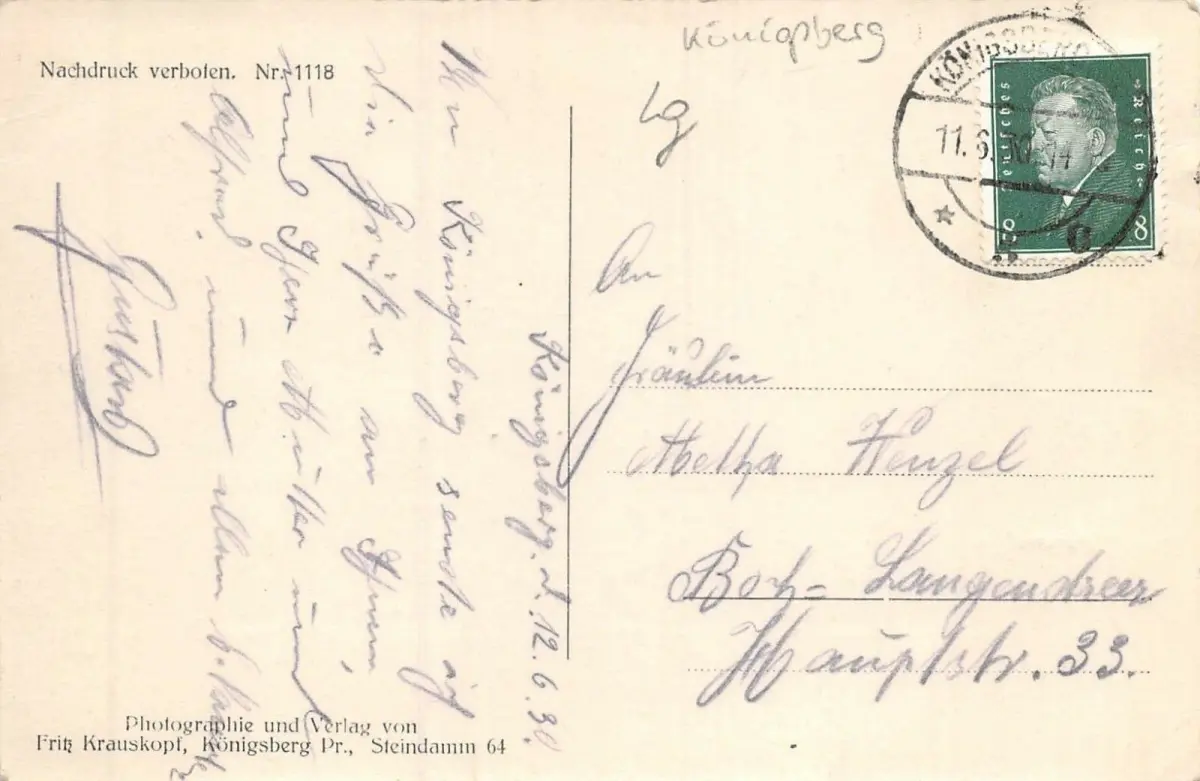 Königsberg
Lg
Nachdruck verboten. Nr. 1118
KÖNIGSBERG
11.6.30
Deutsches Reich
8 8
Königsberg. d. 12.6.30.
Von Königsberg sende ich
die Grüße an Ihnen,
und Ihren Mutter und
Alfred. und allen
Gustav
An
Fräulein
Metha Wenzel
Boch-Langendreer
Hauptstr. 33.
Photographie und Verlag von
Fritz Krauskopf, Königsberg Pr., Steindamm 64